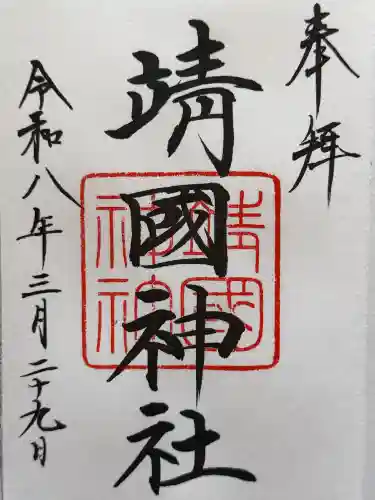 奉拜
靖國神社
靖國神社
令和八年三月二十九日